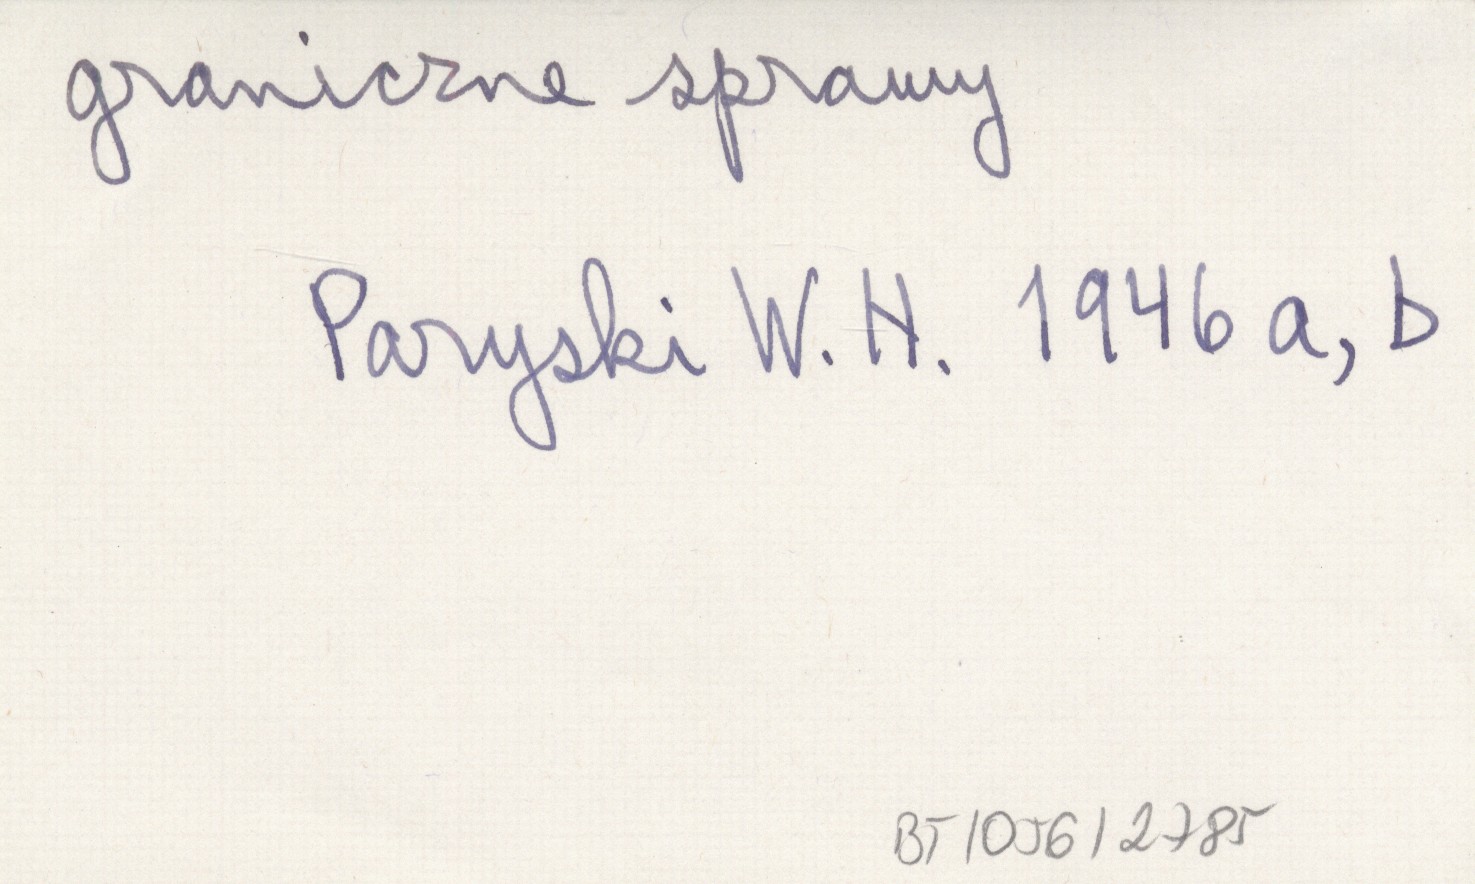 graniczne sprawy
Paryski W. H. 1946 a, b
BT/056/2785